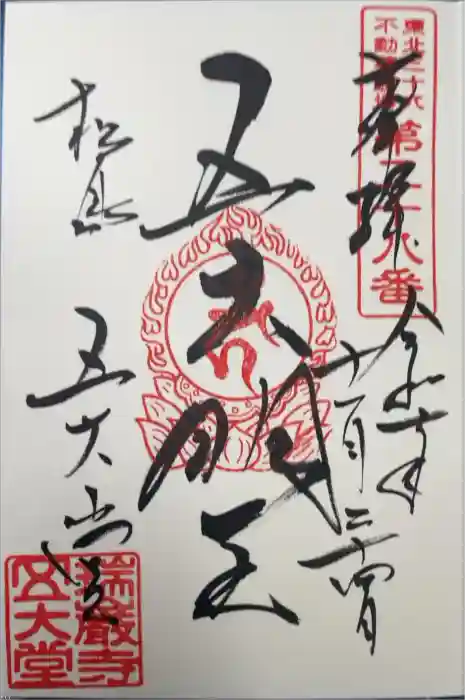 東北三十六
不動尊霊場
第二十八番
奉拝
令和七年
十一月二十四日
五大明王
松島
五大堂
瑞巌寺
五大堂